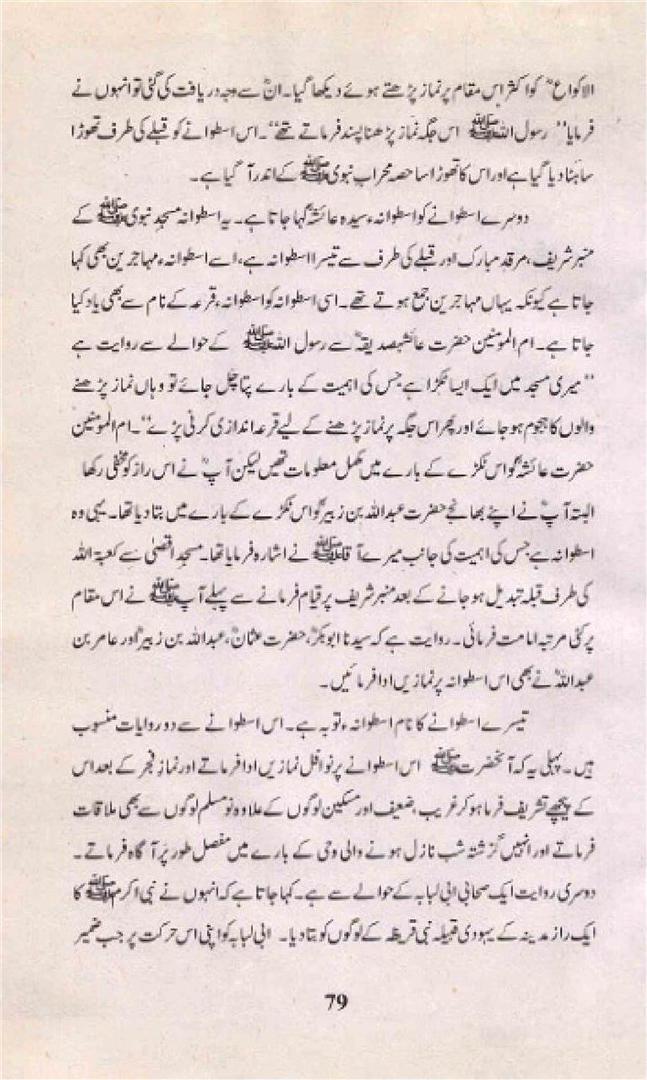 الاکواعؓ کو اکثر اس مقام پر نماز پڑھتے ہوئے دیکھا گیا۔ ان سے وجہ دریافت کی گئی تو انہوں نے
فرمایا ’’رسول اللہ ﷺ اس جگہ نماز پڑھنا پسند فرماتے تھے‘‘۔ اس اسطوانے کو قبلے کی طرف تھوڑا
سا ہٹا دیا گیا ہے اور اس کا تھوڑا سا حصہ محراب نبوی ﷺ کے اندر آ گیا ہے۔
دوسرے اسطوانے کو اسطوانہ ء سیدہ عائشہؓ کہا جاتا ہے۔ یہ اسطوانہ مسجد نبوی ﷺ کے
منبر شریف، مرقد مبارک اور قبلے کی طرف سے تیسرا اسطوانہ ہے، اسے اسطوانہ ء مہاجرین بھی کہا
جاتا ہے کیونکہ یہاں مہاجرین جمع ہوتے تھے۔ اسی اسطوانہ کو اسطوانہ ء قرعہ کے نام سے بھی یاد کیا
جاتا ہے۔ ام المومنین حضرت عائشہ صدیقہؓ سے رسول اللہ ﷺ کے حوالے سے روایت ہے
’’میری مسجد میں ایک ایسا ٹکڑا ہے جس کی اہمیت کے بارے پتا چل جائے تو وہاں نماز پڑھنے
والوں کا ہجوم ہو جائے اور پھر اس جگہ پر نماز پڑھنے کے لیے قرعہ اندازی کرنی پڑے‘‘۔ ام المومنین
حضرت عائشہؓ کو اس ٹکڑے کے بارے میں مکمل معلومات تھیں لیکن آپؓ نے اس راز کو مخفی رکھا
البتہ آپؓ نے اپنے بھانجے حضرت عبداللہ بن زبیرؓ کو اس ٹکڑے کے بارے میں بتا دیا تھا۔ یہی وہ
اسطوانہ ہے جس کی اہمیت کی جانب میرے آقا ﷺ نے اشارہ فرمایا تھا۔ مسجد اقصیٰ سے کعبۃ اللہ
کی طرف قبلہ تبدیل ہو جانے کے بعد منبر شریف پر قیام فرمانے سے پہلے آپ ﷺ نے اس مقام
پر کئی مرتبہ امامت فرمائی۔ روایت ہے کہ سیدنا ابوبکرؓ، حضرت عثمانؓ، عبداللہ بن زبیرؓ اور عامر بن
عبداللہؓ نے بھی اس اسطوانہ پر نمازیں ادا فرمائیں۔
تیسرے اسطوانے کا نام اسطوانہ ء توبہ ہے۔ اس اسطوانے سے دو روایات منسوب
ہیں۔ پہلی یہ کہ آنحضرت ﷺ اس اسطوانے پر نوافل نمازیں ادا فرماتے اور نماز فجر کے بعد اس
کے پیچھے تشریف فرما ہو کر غریب، ضعیف اور مسکین لوگوں کے علاوہ نو مسلم لوگوں سے بھی ملاقات
فرماتے اور انہیں گزشتہ شب نازل ہونے والی وحی کے بارے میں مفصل طور پر آگاہ فرماتے۔
دوسری روایت ایک صحابی ابی لبابہ کے حوالے سے ہے۔ کہا جاتا ہے کہ انہوں نے نبی اکرم ﷺ کا
ایک راز مدینہ کے یہودی قبیلہ نبی قریظہ کے لوگوں کو بتا دیا۔ ابی لبابہ کو اپنی اس حرکت پر جب ضمیر
79